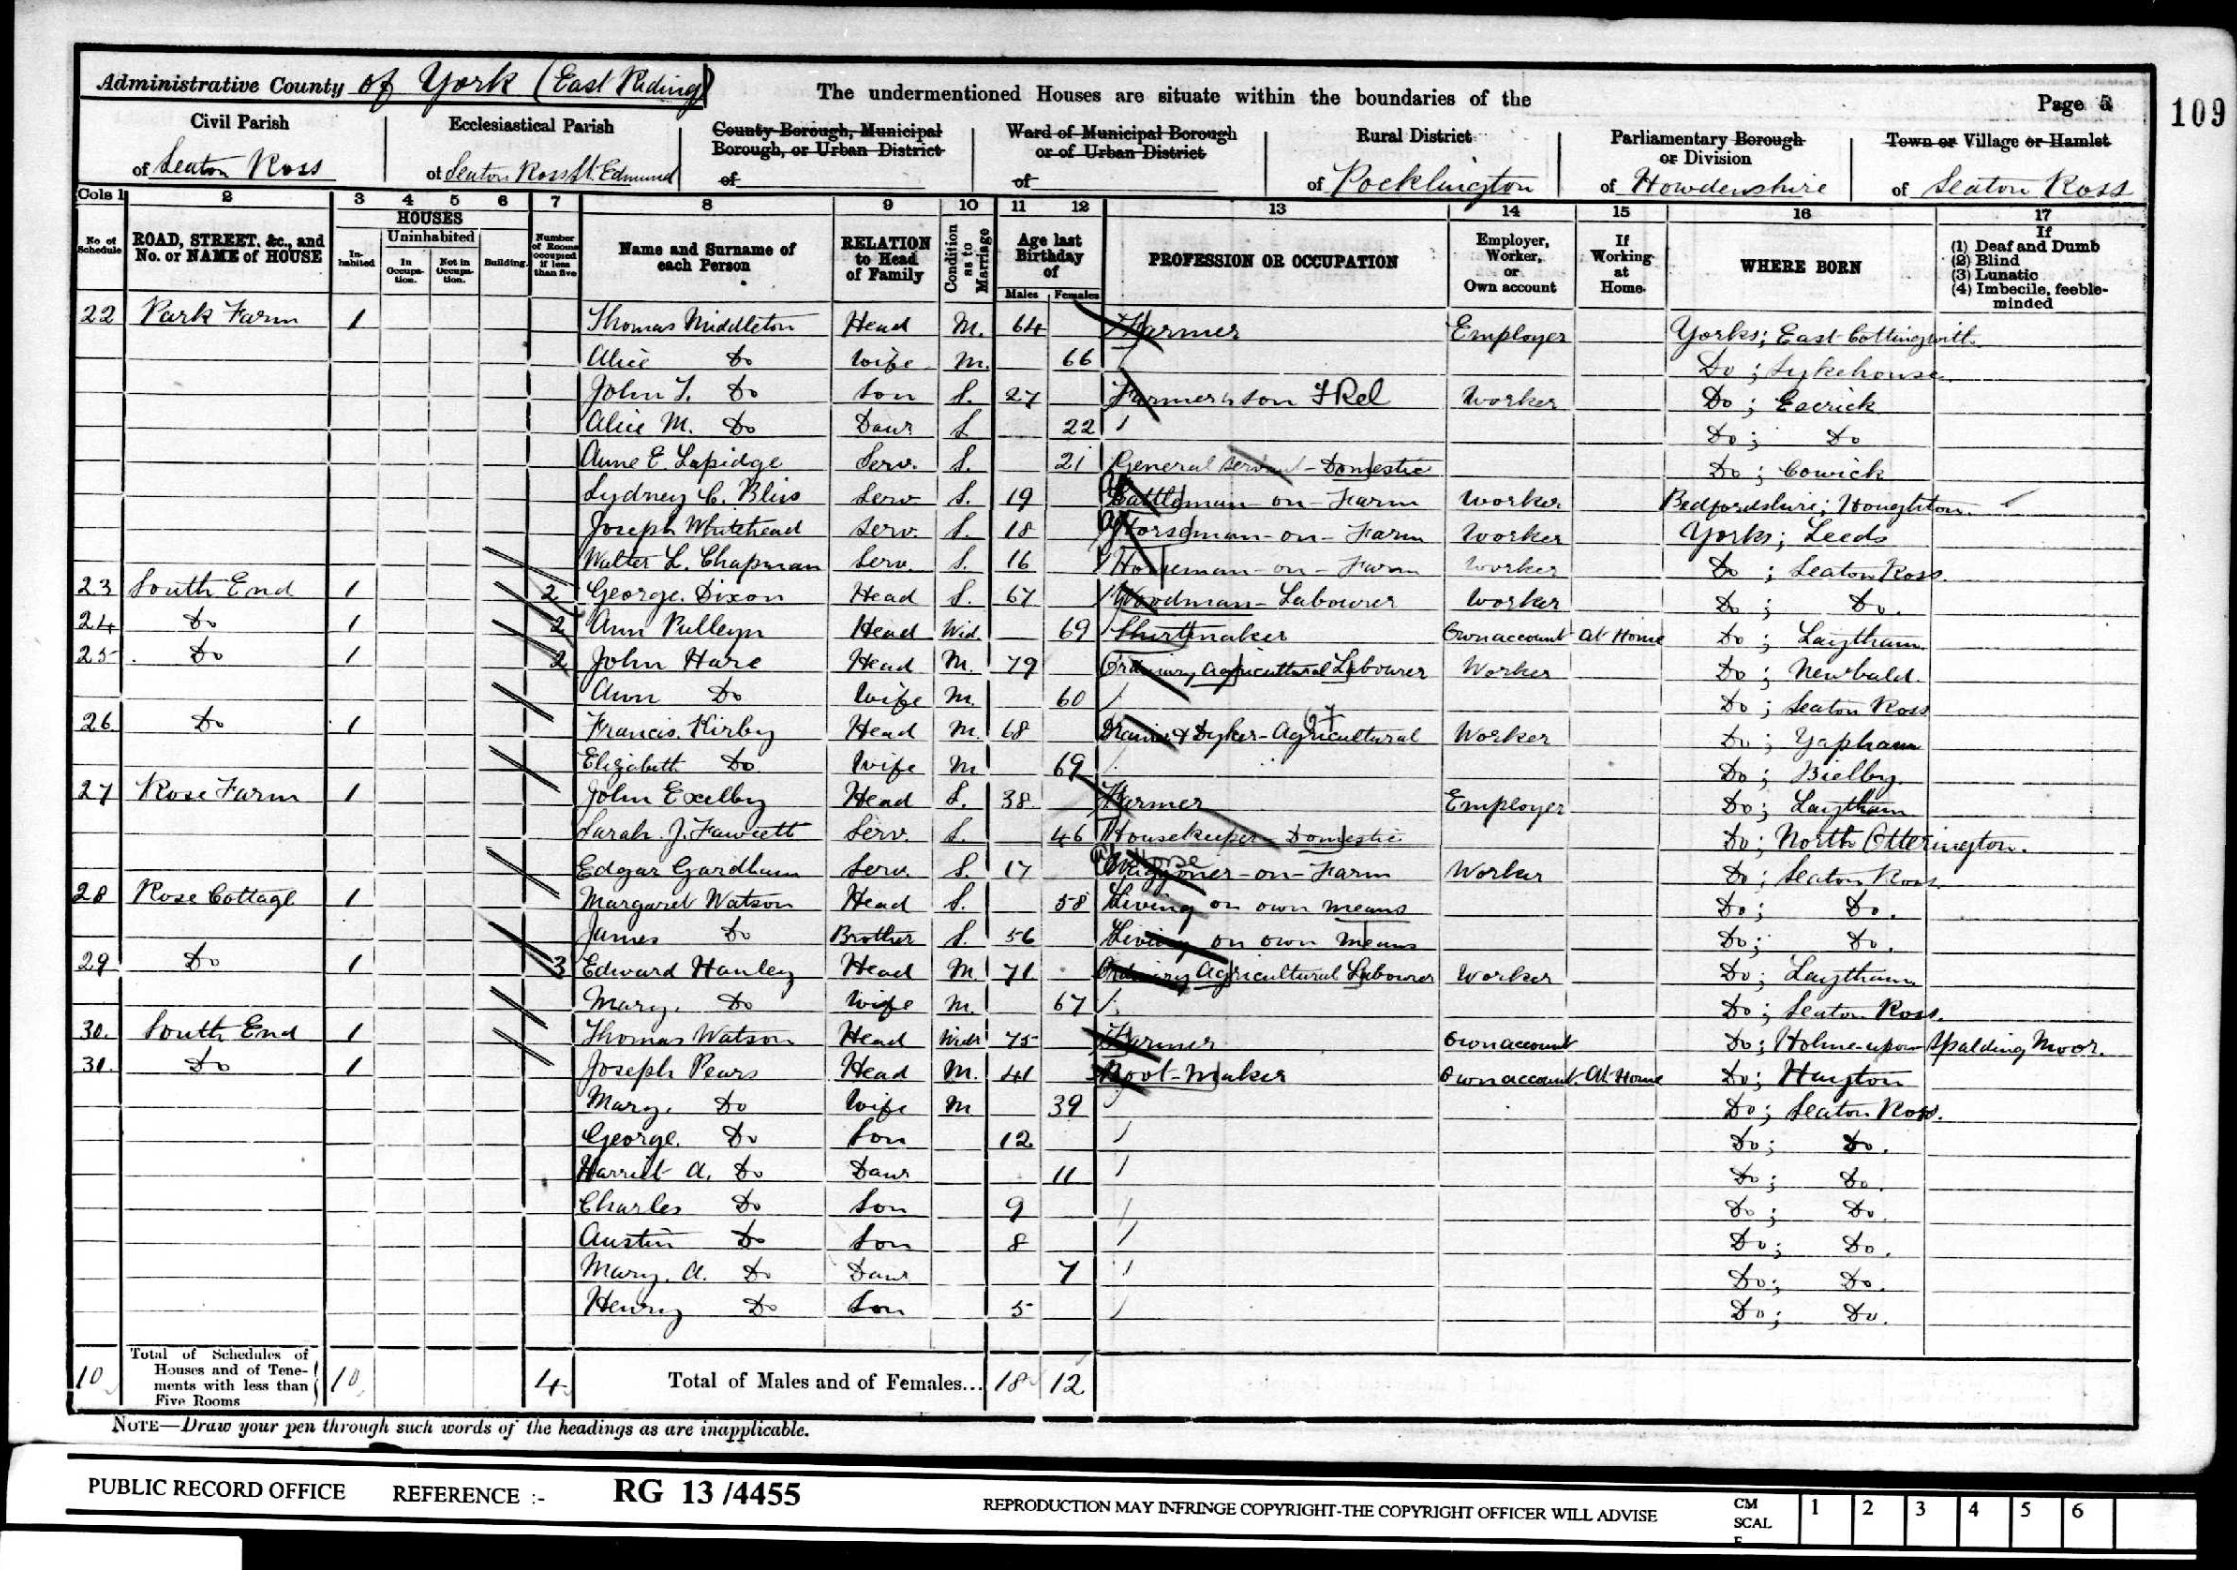 Administrative County of York (East Riding)
The undermentioned Houses are situate within the boundaries of the
Page 5
109
Civil Parish
of Seaton Ross
Ecclesiastical Parish
of Seaton Ross St. Edmund
County Borough, Municipal
Borough, or Urban District
of
Ward of Municipal Borough
or of Urban District
of
Rural District
of Pocklington
Parliamentary Borough
or Division
of Howdenshire
Town or Village or Hamlet
of Seaton Ross
Cols 1 2 3 4 5 6 7 8 9 10 11 12 13 14 15 16 17
No of Schedule
ROAD, STREET, &c., and
No. or NAME of HOUSE
HOUSES
Inhabited
Uninhabited
In Occupation.
Not in Occupation.
Building.
Number of Rooms occupied if less than five
Name and Surname of
each Person
RELATION
to Head
of Family
Condition as to Marriage
Age last
Birthday
of
Males Females
PROFESSION OR OCCUPATION
Employer,
Worker,
or
Own account
If
Working
at
Home.
WHERE BORN
If
(1) Deaf and Dumb
(2) Blind
(3) Lunatic
(4) Imbecile, feeble-
minded
22 Park Farm 1 Thomas Middleton Head M. 64 Farmer Employer Yorks; East Cottingwith
Alice Do Wife M. 66 Do; Sykehouse
John T. Do Son S. 27 Farmer's son FRel Worker Do; Escrick
Alice M. Do Daur S. 22 Do; Do
Anne E. Lapidge Serv. S. 21 General Servant - Domestic Do; Cowick
Sydney C. Bliss Serv S. 19 Cattleman-on-Farm Worker Bedfordshire; Houghton
Joseph Whitehead Serv. S. 18 Horseman-on-Farm Worker Yorks; Leeds
Walter L. Chapman Serv. S. 16 Horseman-on-Farm Worker Do; Seaton Ross.
23 South End 1 2 George Dixon Head S. 67 Woodman-Labourer Worker Do; Do.
24 Do 1 2 Ann Pulleyn Head Wid. 69 Shirtmaker Own account At Home Do; Laytham
25 Do 1 2 John Hare Head M. 79 Ordinary Agricultural Labourer Worker Do; Newbald.
Ann Do Wife M. 60 Do; Seaton Ross
26 Do 1 Francis Kirby Head M. 68 Drainer & Dyker-Agricultural Worker Do; Yapham
Elizabeth Do Wife M 69 Do; Bielby
27 Rose Farm 1 John Exelby Head S. 38 Farmer Employer Do; Laytham
Sarah J. Fawcett Serv. S. 46 Housekeeper-Domestic Do; North Otterington.
Edgar Gardham Serv. S. 17 Horse Waggoner-on-Farm Worker Do; Seaton Ross.
28 Rose Cottage 1 Margaret Watson Head S. 58 Living on own means Do; Do.
James Do Brother S. 56 Living on own means Do; Do.
29 Do 1 3 Edward Hanley Head M. 71 Ordinary Agricultural Labourer Worker Do; Laytham
Mary Do Wife M. 67 Do; Seaton Ross.
30. South End 1 Thomas Watson Head Widr 75 Farmer Own account Do; Holme-upon-Spalding Moor.
31. Do 1 Joseph Pears Head M. 41 Boot-Maker Own account. At Home Do; Hayton
Mary. Do Wife M 39 Do; Seaton Ross.
George. Do Son 12 Do; Do.
Harriet A. Do Daur 11 Do; Do.
Charles Do Son 9 Do; Do.
Austin Do Son 8 Do; Do.
Mary. A. Do Daur 7 Do; Do.
Henry Do Son 5 Do; Do.
10 Total of Schedules of
Houses and of Tene-
ments with less than
Five Rooms
10 4 Total of Males and of Females... 18 12
NOTE—Draw your pen through such words of the headings as are inapplicable.
PUBLIC RECORD OFFICE REFERENCE :- RG 13/4455 REPRODUCTION MAY INFRINGE COPYRIGHT-THE COPYRIGHT OFFICER WILL ADVISE
CM
SCAL
E
1 2 3 4 5 6